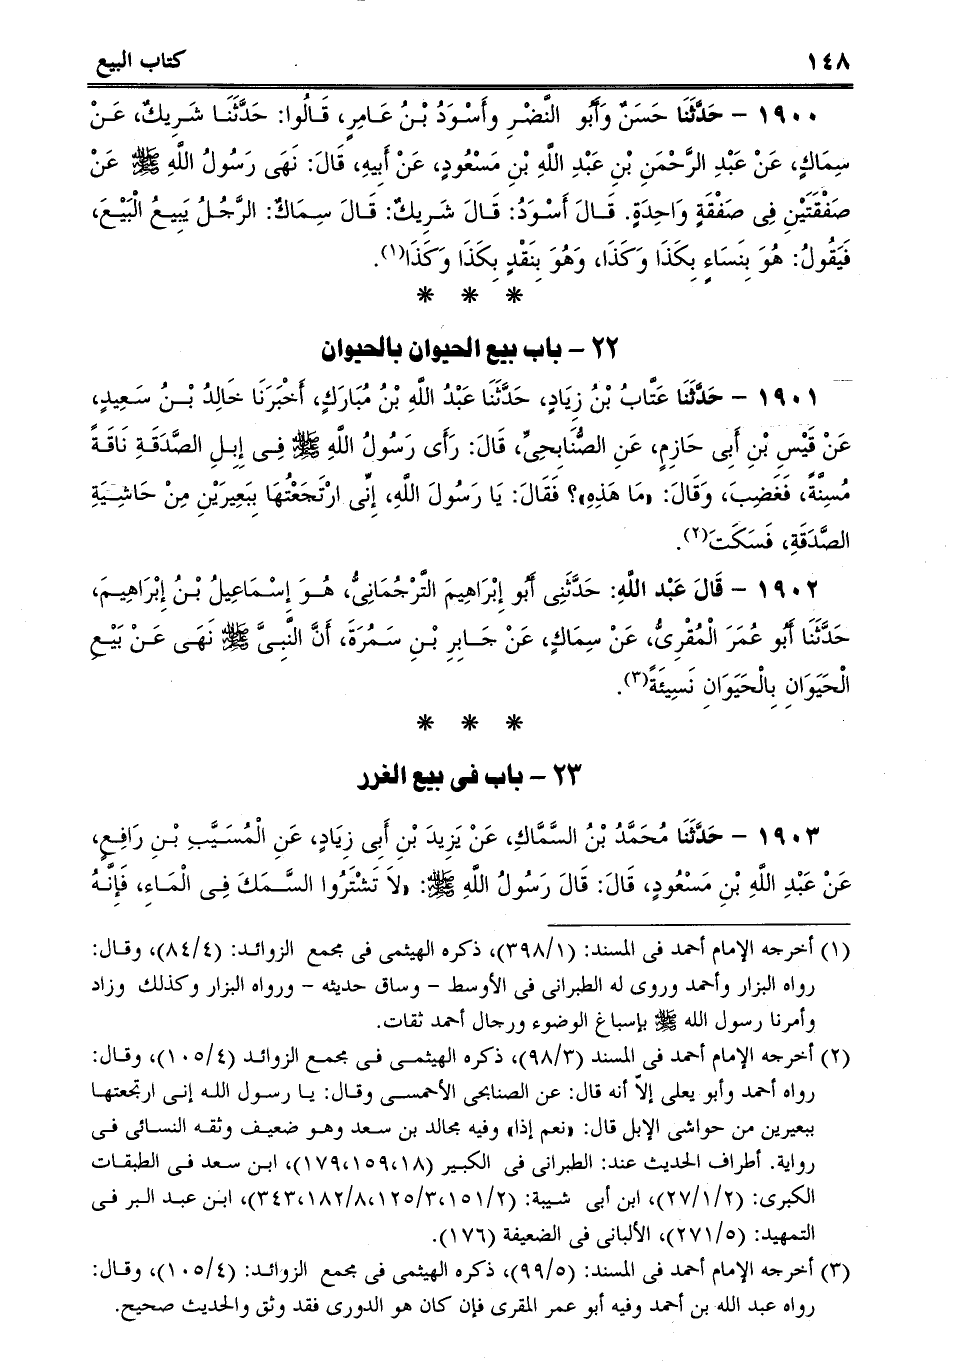 ١٤٨ كتاب البيع
١٩٠٠ - حَدَّثَنَا حَسَنٌ وَأَبُو النَّضْرِ وأَسْوَدُ بْنُ عَامِرٍ، قَالُوا: حَدَّثَنَا شَرِيكٌ، عَنْ
سِمَاكٍ، عَنْ عَبْدِ الرَّحْمَنِ بْنِ عَبْدِ اللَّهِ بْنِ مَسْعُودٍ، عَنْ أَبِيهِ، قَالَ: نَهَى رَسُولُ اللَّهِ ﷺ عَنْ
صَفْقَتَيْنِ فِى صَفْقَةٍ وَاحِدَةٍ. قَالَ أَسْوَدُ: قَالَ شَرِيكٌ: قَالَ سِمَاكٌ: الرَّجُلُ يَبِيعُ الْبَيْعَ،
فَيَقُولُ: هُوَ بِنَسَاءٍ بِكَذَا وَكَذَا، وَهُوَ بِنَقْدٍ بِكَذَا وَكَذَا(١).
* * *
٢٢ - باب بيع الحيوان بالحيوان
١٩٠١ - حَدَّثَنَا عَتَّابُ بْنُ زِيَادٍ، حَدَّثَنَا عَبْدُ اللَّهِ بْنُ مُبَارَكٍ، أَخْبَرَنَا خَالِدُ بْنُ سَعِيدٍ،
عَنْ قَيْسِ بْنِ أَبِى حَازِمٍ، عَنِ الصُّنَابِحِىِّ، قَالَ: رَأَى رَسُولُ اللَّهِ ﷺ فِى إِبِلِ الصَّدَقَةِ نَاقَةً
مُسِنَّةً، فَغَضِبَ، وَقَالَ: «مَا هَذِهِ»؟ فَقَالَ: يَا رَسُولَ اللَّهِ، إِنِّى ارْتَجَعْتُهَا بِبَعِيرَيْنِ مِنْ حَاشِيَةِ
الصَّدَقَةِ، فَسَكَتَ(٢).
١٩٠٢ - قَالَ عَبْد اللَّهِ: حَدَّثَنِى أَبُو إِبْرَاهِيمَ التَّرْجُمَانِىُّ، هُوَ إِسْمَاعِيلُ بْنُ إِبْرَاهِيمَ،
حَدَّثَنَا أَبُو عُمَرَ الْمُقْرِىُّ، عَنْ سِمَاكٍ، عَنْ جَابِرِ بْنِ سَمُرَةَ، أَنَّ النَّبِىَّ ﷺ نَهَى عَنْ بَيْعِ
الْحَيَوَانِ بِالْحَيَوَانِ نَسِيئَةً(٣).
* * *
٢٣ - باب فى بيع الغرر
١٩٠٣ - حَدَّثَنَا مُحَمَّدُ بْنُ السَّمَّاكِ، عَنْ يَزِيدَ بْنِ أَبِى زِيَادٍ، عَنِ الْمُسَيَّبِ بْنِ رَافِعٍ،
عَنْ عَبْدِ اللَّهِ بْنِ مَسْعُودٍ، قَالَ: قَالَ رَسُولُ اللَّهِ ﷺ: «لَا تَشْتَرُوا السَّمَكَ فِى الْمَاءِ، فَإِنَّهُ
(١) أخرجه الإمام أحمد فى المسند: (٣٩٨/١)، ذكره الهيثمى فى مجمع الزوائد: (٨٤/٤)، وقال:
رواه البزار وأحمد وروى له الطبرانى فى الأوسط - وساق حديثه - ورواه البزار وكذلك وزاد
وأمرنا رسول الله ﷺ بإسباغ الوضوء ورجال أحمد ثقات.
(٢) أخرجه الإمام أحمد فى المسند (٩٨/٣)، ذكره الهيثمى فى مجمع الزوائد (١٠٥/٤)، وقال:
رواه أحمد وأبو يعلى إلاّ أنه قال: عن الصنابحى الأحمسى وقال: يا رسول الله إنى ارتجعتها
ببعيرين من حواشى الإبل قال: «نعم إذا» وفيه مجالد بن سعد وهو ضعيف وثقه النسائى فى
رواية. أطراف الحديث عند: الطبرانى فى الكبير (١٧٩،١٥٩،١٨)، ابن سعد فى الطبقات
الكبرى: (٢٧/١/٢)، ابن أبى شيبة: (٣٤٣،١٨٢/٨،١٢٥/٣،١٥١/٢)، ابن عبد البر فى
التمهيد: (٢٧١/٥)، الألبانى فى الضعيفة (١٧٦).
(٣) أخرجه الإمام أحمد فى المسند: (٩٩/٥)، ذكره الهيثمى فى مجمع الزوائد: (١٠٥/٤)، وقال:
رواه عبد الله بن أحمد وفيه أبو عمر المقرى فإن كان هو الدورى فقد وثق والحديث صحيح.